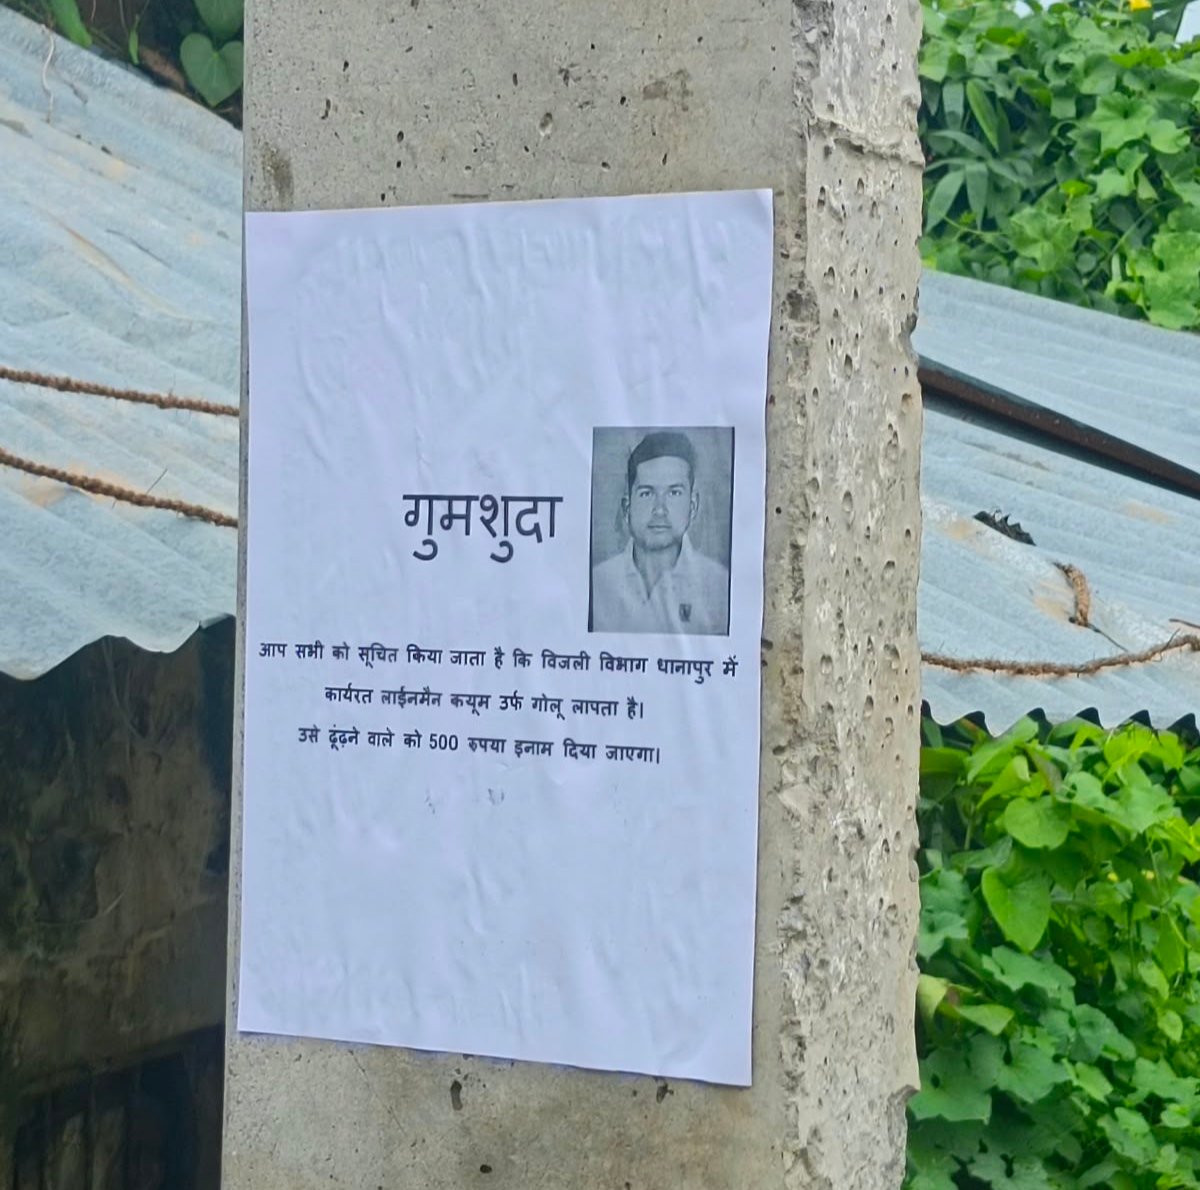 गुमशुदा
आप सभी को सूचित किया जाता है कि विजली विभाग धानापुर में
कार्यरत लाईनमैन कयूम उर्फ गोलू लापता है।
उसे ढूंढ़ने वाले को 500 रुपया इनाम दिया जाएगा।